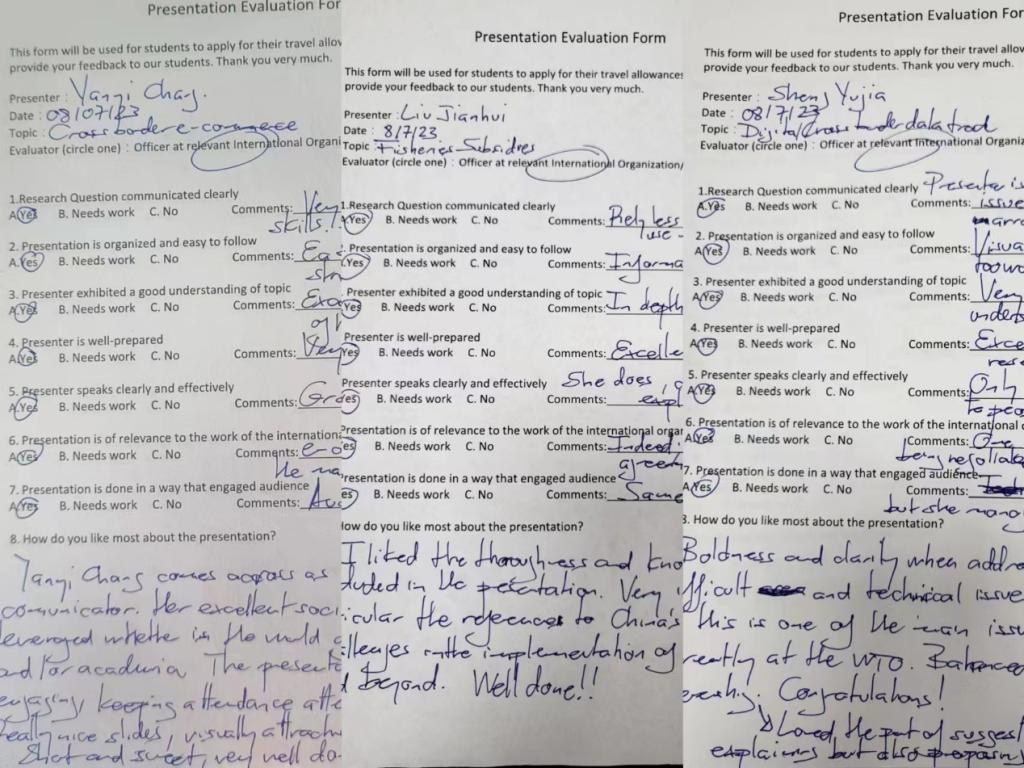 Presentation Evaluation For
This form will be used for students to apply for their travel allov
provide your feedback to our students. Thank you very much.
Presenter : Yangi Chang.
Date : 08/07/23
Topic : Cross border e-commerce
Evaluator (circle one) : Officer at relevant International Organi
1.Research Question communicated clearly
A.Yes B. Needs work C. No Comments: Very
skills!
2. Presentation is organized and easy to follow
A.Yes B. Needs work C. No Comments: Ea
3. Presenter exhibited a good understanding of topic
A.Yes B. Needs work C. No Comments: Exce
4. Presenter is well-prepared
A.Yes B. Needs work C. No Comments: Very
5. Presenter speaks clearly and effectively
A.Yes B. Needs work C. No Comments: Gr
6. Presentation is of relevance to the work of the internation
A.Yes B. Needs work C. No Comments: e-c
7. Presentation is done in a way that engaged audience
A.Yes B. Needs work C. No Comments:
8. How do you like most about the presentation?
Yangi Chang comes across as
communicator. Her excellent soci
leveraged whether in the world
and/or academia. The presenta
engaging, keeping attendance atte
really nice slides, visually attractiv
Short and sweet, very well do
Presentation Evaluation Form
This form will be used for students to apply for their travel allowances
provide your feedback to our students. Thank you very much.
Presenter : Liu Jianhui
Date : 8/7/23
Topic : Fisheries Subsidies
Evaluator (circle one) : Officer at relevant International Organization/
1.Research Question communicated clearly
Yes B. Needs work C. No Comments: Rely less
use
. Presentation is organized and easy to follow
Yes B. Needs work C. No Comments: Informa
. Presenter exhibited a good understanding of topic
Yes B. Needs work C. No Comments: In depth
Presenter is well-prepared
Yes B. Needs work C. No Comments: Excelle
Presenter speaks clearly and effectively She does,
es B. Needs work C. No Comments: expl
Presentation is of relevance to the work of the international organ
es B. Needs work C. No Comments: Indeed
agreem
resentation is done in a way that engaged audience
es B. Needs work C. No Comments: Same
How do you like most about the presentation?
I liked the thoroughness and kno
cluded in the presentation. Very i
icular the references to China's
allenges in the implementation of
d beyond. Well done!!
Presentation Evaluation For
This form will be used for students to apply for their travel allow
provide your feedback to our students. Thank you very m
Presenter : Sheng Yujia
Date : 08/7/23
Topic : Digital/Cross border data trad
Evaluator (circle one) : Officer at relevant International Organiza
1.Research Question communicated clearly Presenta is
A.Yes B. Needs work C. No Comments: issue
narro
2. Presentation is organized and easy to follow
A.Yes B. Needs work C. No Comments: Visua
too wo
3. Presenter exhibited a good understanding of topic
A.Yes B. Needs work C. No Comments: Very
unders
4. Presenter is well-prepared
A.Yes B. Needs work C. No Comments: Exce
rese
5. Presenter speaks clearly and effectively
A.Yes B. Needs work C. No Comments: Only
to peo
6. Presentation is of relevance to the work of the international o
A.Yes B. Needs work C. No Comments: One
being negotiate
7. Presentation is done in a way that engaged audience
A.Yes B. Needs work C. No Comments:
but she mana
8. How do you like most about the presentation?
Boldness and clarity when addre
fficult and technical issue
this is one of the main issu
rently at the WTO. Balanced
Congratulations!
Loved the part of suggest
explaining but also proposing